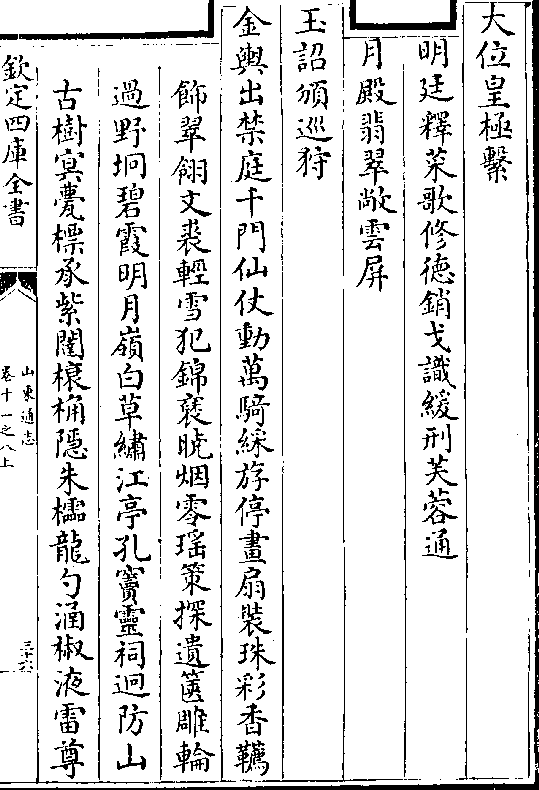 大位皇極繫
明廷釋菜歌修德銷戈識緩刑芙蓉通
月殿翡翠敞雲屏
玉詔頒巡狩
金輿出禁庭千門仙仗動萬騎綵斿停畫扇裝珠彩香韉
飾翠翎文裘輕雪犯錦襃曉烟零瑶策探遺篋雕輪
過野坰碧霞明月嶺白草繡江亭孔竇靈祠迥防山
古樹寘甍標承紫闥榱桷隠朱櫺龍勺涵椒液雷尊
欽定四庫全書
山東通志
卷十一之八上
三十六